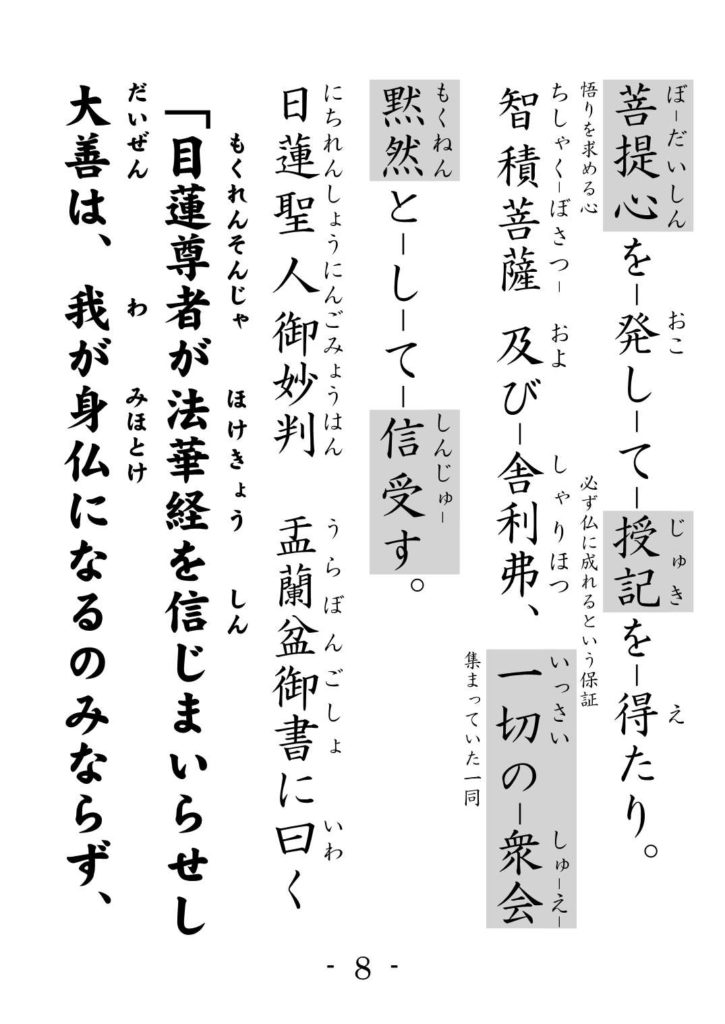 ぼーだいしん　おこ　じゅき　え
菩提心をー発しーてー授記をー得たり。
悟りを求める心　必ず仏に成れるという保証
ちしゃくーぼさつー　およ　しゃりほつ　いっさい　しゅーえー
智積菩薩　及びー舎利弗、一切のー衆会
集まっていた一同
もくねん　しんじゅー
黙然とーしーてー信受す。
にちれんしょうにんごみょうはん　うらぼんごしょ　いわ
日蓮聖人御妙判　盂蘭盆御書に曰く
もくれんそんじゃ　ほけきょう　しん
「目蓮尊者が法華経を信じまいらせし
だいぜん　わ　みほとけ
大善は、我が身仏になるのみならず、
- 8 -